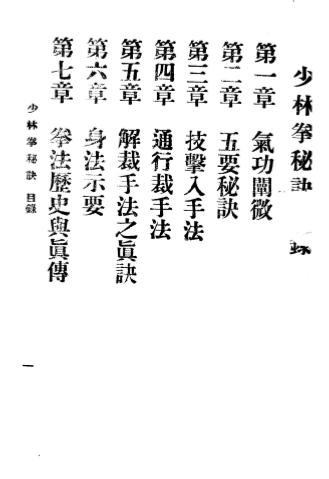 少林拳秘訣 錄
第一章 氣功闡微
第二章 五要秘訣
第三章 技擊入手法
第四章 通行裁手法
第五章 解裁手法之眞訣
第六章 身法示要
第七章 拳法歷史與眞傳
少林拳秘訣 目錄
一